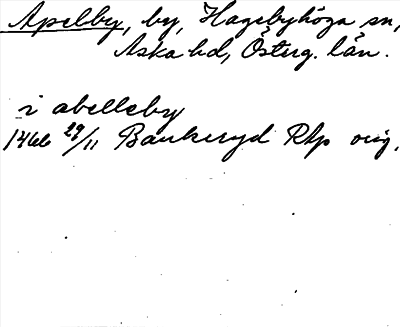 Apelby, by, Hagebyhöga sn,
Aska hd, Österg. län.
i abelleby
1466 29/11 Bankeryd RAp orig.